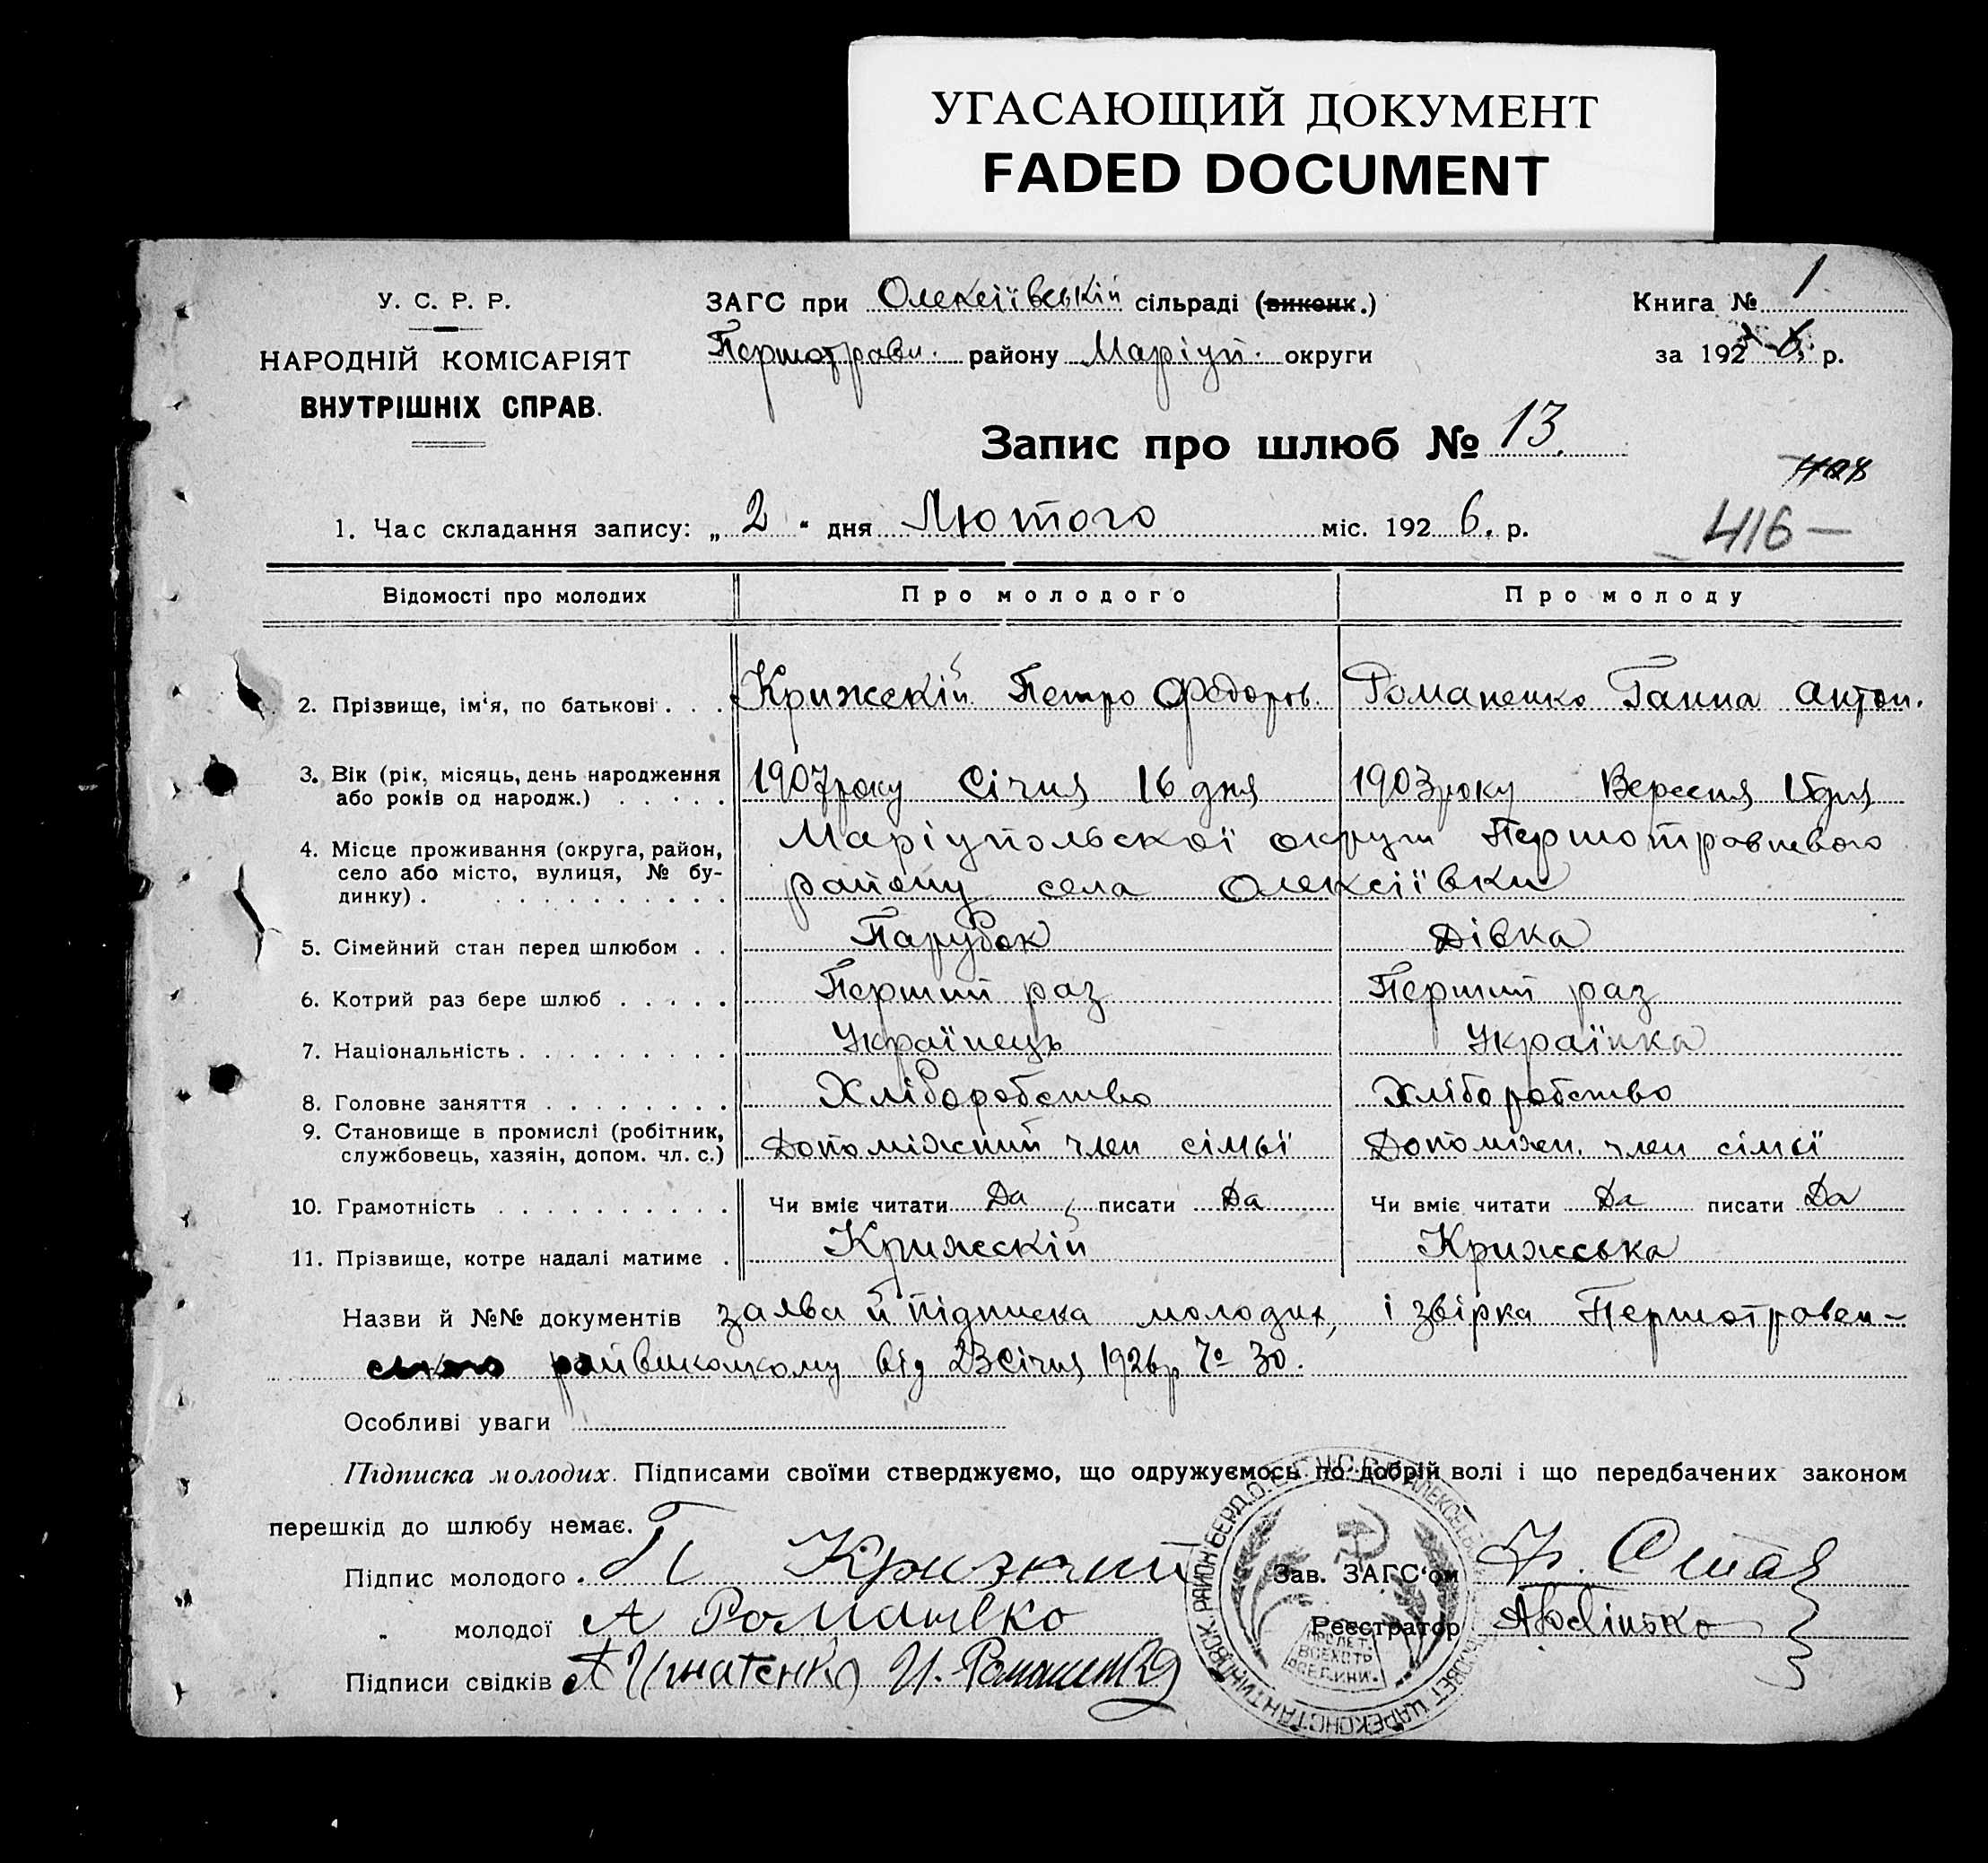 УГАСАЮЩИЙ ДОКУМЕНТ
FADED DOCUMENT
У. С. Р. Р.
НАРОДНІЙ КОМІСАРІЯТ
ВНУТРІШНІХ СПРАВ.
ЗАГС при Олексіївській сільраді (виконк.)
Першотравн. району Маріуп. округи
Книга № 1
за 192 6 р.
Запис про шлюб № 13.
1. Час складання запису: „ 2 “ дня Лютого міс. 192 6. р.
416 —
Відомості про молодих Про молодого Про молоду
2. Прізвище, ім'я, по батькові . . . Крижскій Петро Федоров. Романенко Ганна Антон.
3. Вік (рік, місяць, день народження або років од народж.) . . . . . 1907 року Січня 16 дня 1903 року Вересня 15 дня
4. Місце проживання (округа, район, Маріупольскої округи Першотравневого
село або місто, вулиця, № бу-
динку) . . . . . . . . . . . району села Олексіївки
5. Сімейний стан перед шлюбом . . Парубок Дівка
6. Котрий раз бере шлюб . . . . . Перший раз Перший раз
7. Національність . . . . . . . . . Українець Українка
8. Головне заняття . . . . . . . . Хліборобство Хліборобство
9. Становище в промислі (робітник,
службовець, хазяін, допом. чл. с.) Допоміжний член сімьї Допоміжн. член сімьї
10. Грамотність . . . . . . . . . . Чи вміє читати Да писати Да Чи вміє читати Да писати Да
11. Прізвище, котре надалі матиме . Крижскій Крижська
Назви й №№ документів заява й підписка молодих, і звірка Першотравен-
райвиконкому від 23 Січня 1926 р № 30.
Особливі уваги
Підписка молодих. Підписами своїми стверджуємо, що одружуємось по добрій волі і що передбачених законом
перешкід до шлюбу немає.
Підпис молодого П Кризкий Зав. ЗАГС'ом
„ молодої А Романеко Реєстратор
Підписи свідків А Игнатенко И. Романенко
ПРОЛЕТ. ВСЕХ СТР СОЕДИНИ.